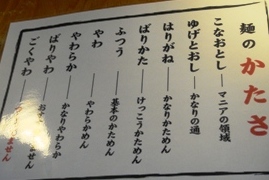 麺のかたさ
こなおとし――マニアの領域
ゆげとおし――かなりの通
はりがね――かなりかためん
ばりかた――けっこうかためん
ふつう――基本のかためん
やわ――やわらかめん
やわらか――かなりやわらか
ばりやわ――
ごくやわ――ません